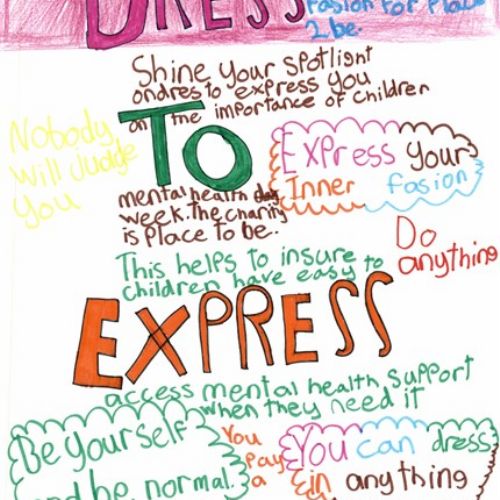 DRESS
Fasion For Place
2 be.
Shine Your Spotlight
on dres to express you
on the importance of Children
TO
Nobody
Will Judge
You
Express Your
Inner fasion
mental health day
week. The charity
is Place to be.
Do
anything
This helps to insure
children have easy to
EXPRESS
access mental health Support
when they need it
Be Yourself
and be normal.
You
Pay
a
You can dress
in anything